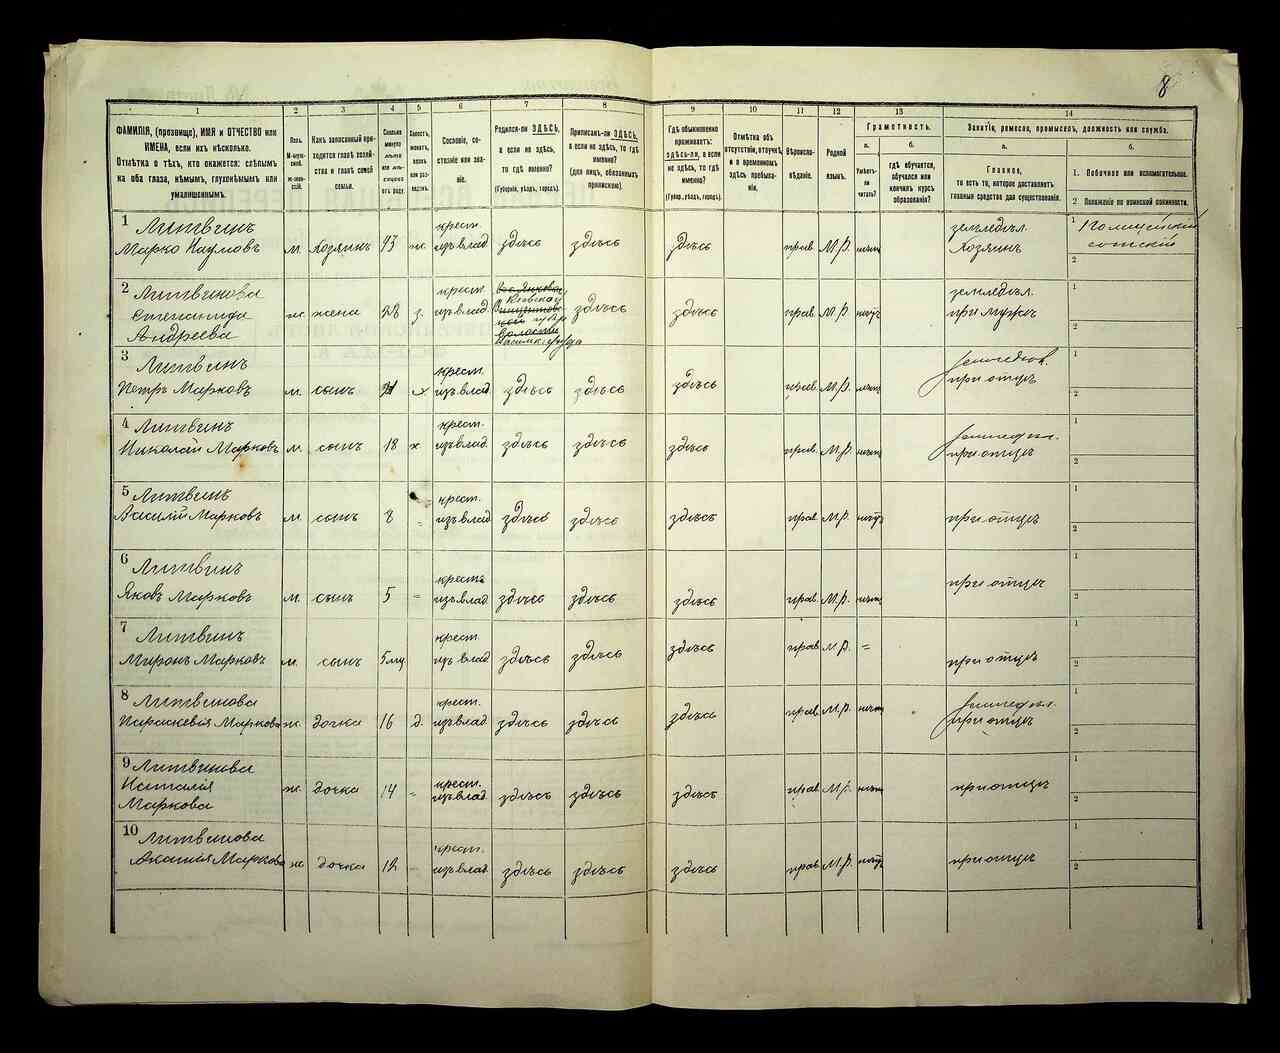 8
1
2
3
4
5
6
7
8
9
10
11
12
13
14
ФАМИЛІЯ, (прозвище), ИМЯ и ОТЧЕСТВО или
ИМЕНА, если ихъ нѣсколько.
Отмѣтка о тѣхъ, кто окажется: слѣпымъ
на оба глаза, нѣмымъ, глухонѣмымъ или
умалишеннымъ.
Полъ.
М-мужской.
Ж-женскій.
Какъ записанный приходится главѣ хозяйства и главѣ своей семьи.
Сколько минуло лѣтъ или мѣсяцевъ отъ роду.
Холостъ, женатъ, вдовъ или разведенъ.
Сословіе, состояніе или званіе.
Родился-ли ЗДѢСЬ,
а если не здѣсь,
то гдѣ именно?
(Губернія, уѣздъ, городъ).
Приписанъ-ли ЗДѢСЬ,
а если не здѣсь, то гдѣ
именно?
(для лицъ, обязанныхъ
припискою).
Гдѣ обыкновенно
проживаетъ:
здѣсь-ли, а если
не здѣсь, то гдѣ
именно?
(Губер., уѣздъ, городъ).
Отмѣтка объ
отсутствіи, отлучкѣ
и о временномъ
здѣсь пребываніи.
Вѣроисповѣданіе.
Родной
языкъ.
Грамотность.
а.
Умѣетъ-ли
читать?
б.
гдѣ обучается,
обучался или
кончилъ курсъ
образованія?
Занятіе, ремесло, промыселъ, должность или служба.
а.
Главное,
то есть то, которое доставляетъ
главныя средства для существованія.
б.
1. Побочное или вспомогательное.
2 Положеніе по воинской повинности.
1 Литвинъ
Марко Наумовъ м. хозяинъ 43 ж. крест. изъ влад. здѣсь здѣсь здѣсь прав. М.Р. нѣтъ земледѣл. Хозяинъ
1 Полицейскій сотскій
2
2 Литвинова
Степанида
Андреева ж. жена з. крест. изъ влад. Кіевской губ. здѣсь здѣсь прав. М.Р. нѣтъ земледѣл. при мужѣ
1
2
3 Литвинъ
Петръ Марковъ м. сынъ 21 х крест. изъ влад. здѣсь здѣсь здѣсь прав. М.Р. нѣтъ при отцѣ
1
2
4 Литвинъ
Николай Марковъ м. сынъ 18 х крест. изъ влад. здѣсь здѣсь здѣсь прав. М.Р. нѣтъ земледѣл. при отцѣ
1
2
5 Литвинъ
Василій Марковъ м. сынъ 8 - крест. изъ влад здѣсь здѣсь здѣсь прав М.Р. нѣтъ при отцѣ
1
2
6 Литвинъ
Яковъ Марковъ м. сынъ 5 = крестъ изъ влад. здѣсь здѣсь здѣсь прав. М.Р. нѣтъ при отцѣ
1
2
7 Литвинъ
Миронъ Марковъ м. сынъ 5 мц. крест. изъ влад здѣсь здѣсь здѣсь прав М.Р. = при отцѣ
1
2
8 Литвинова
Параскевія Маркова ж. дочка 16 д. крест. изъ влад. здѣсь здѣсь здѣсь прав. М.Р. нѣтъ земледѣл. при отцѣ
1
2
9 Литвинова
Наталія
Маркова ж. дочка 14 - крест. изъ влад. здѣсь здѣсь здѣсь прав М.Р. нѣтъ при отцѣ
1
2
10 Литвинова
Маркова ж дочка 12 - крест. изъ влад. здѣсь здѣсь здѣсь прав М.Р. нѣтъ при отцѣ
1
2